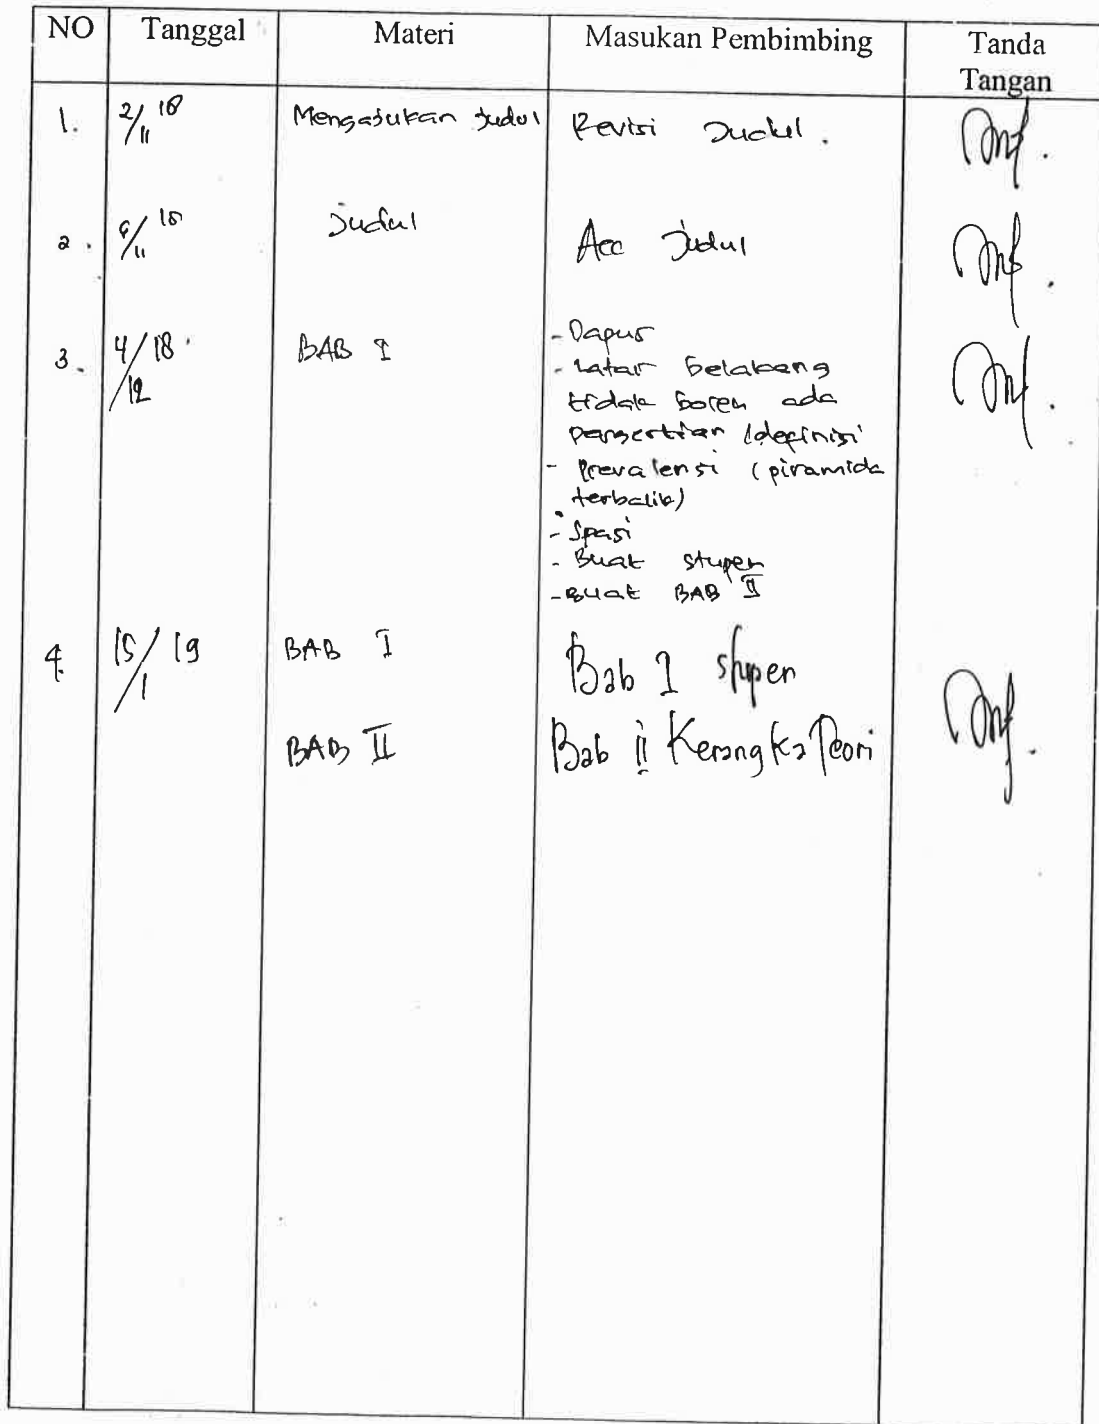 NO Tanggal Materi Masukan Pembimbing Tanda Tangan
1. 2/11 18 Mengajukan Judul Revisi Judul.
2. 18 Judul Acc Judul
3. 4/12 18 BAB I - Dapus
- Latar belakang
tidak boleh ada
pengertian / definisi
- Prevalensi (piramida
terbalik)
- Spasi
- Buat stupen
- Buat BAB II
4. 15/1 19 BAB I Bab I stupen
BAB II Bab II Kerangka Teori